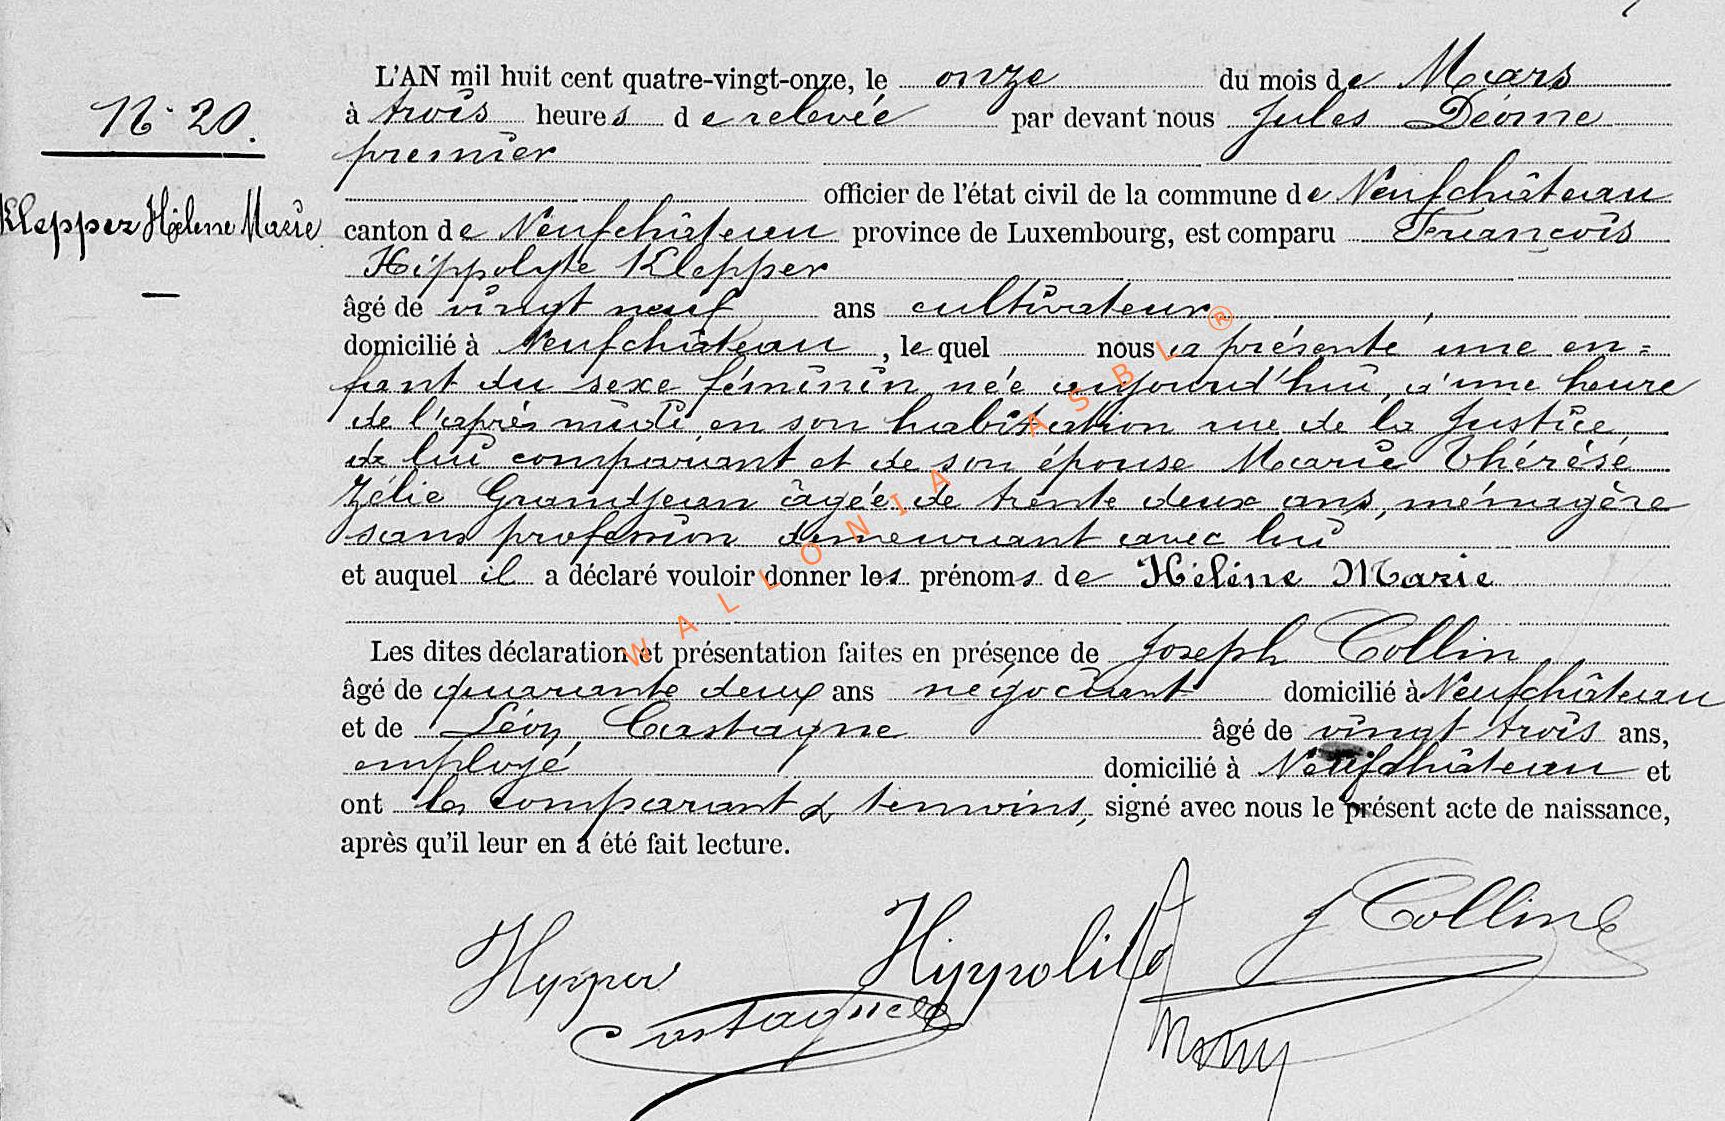 L'AN mil huit cent quatre-vingt-onze, le onze du mois de Mars
N° 20.
à trois heures de relevée par devant nous Jules Déome
premier
officier de l'état civil de la commune de Neufchâteau
Klepper Hélène Marie
canton de Neufchâteau province de Luxembourg, est comparu François
Hippolyte Klepper
âgé de vingt neuf ans cultivateur,
domicilié à Neufchâteau, le quel nous a présenté une en=
fant du sexe féminin née aujourd'hui, à une heure
de l'après midi, en son habitation rue de la Justice,
de lui comparant et de son épouse Marie Thérèse
Zélie Grandjean âgée de trente deux ans, ménagère
sans profession demeurant avec lui
et auquel il a déclaré vouloir donner les prénoms de Hélène Marie
Les dites déclaration et présentation faites en présence de Joseph Collin
âgé de quarante deux ans négociant domicilié à Neufchâteau
et de Léon Castagne âgé de vingt trois ans,
employé domicilié à Neufchâteau et
ont les comparant & témoins, signé avec nous le présent acte de naissance,
après qu'il leur en a été fait lecture.
J Collin
Hippolite
Castagne
WALLONIA ASBL ®